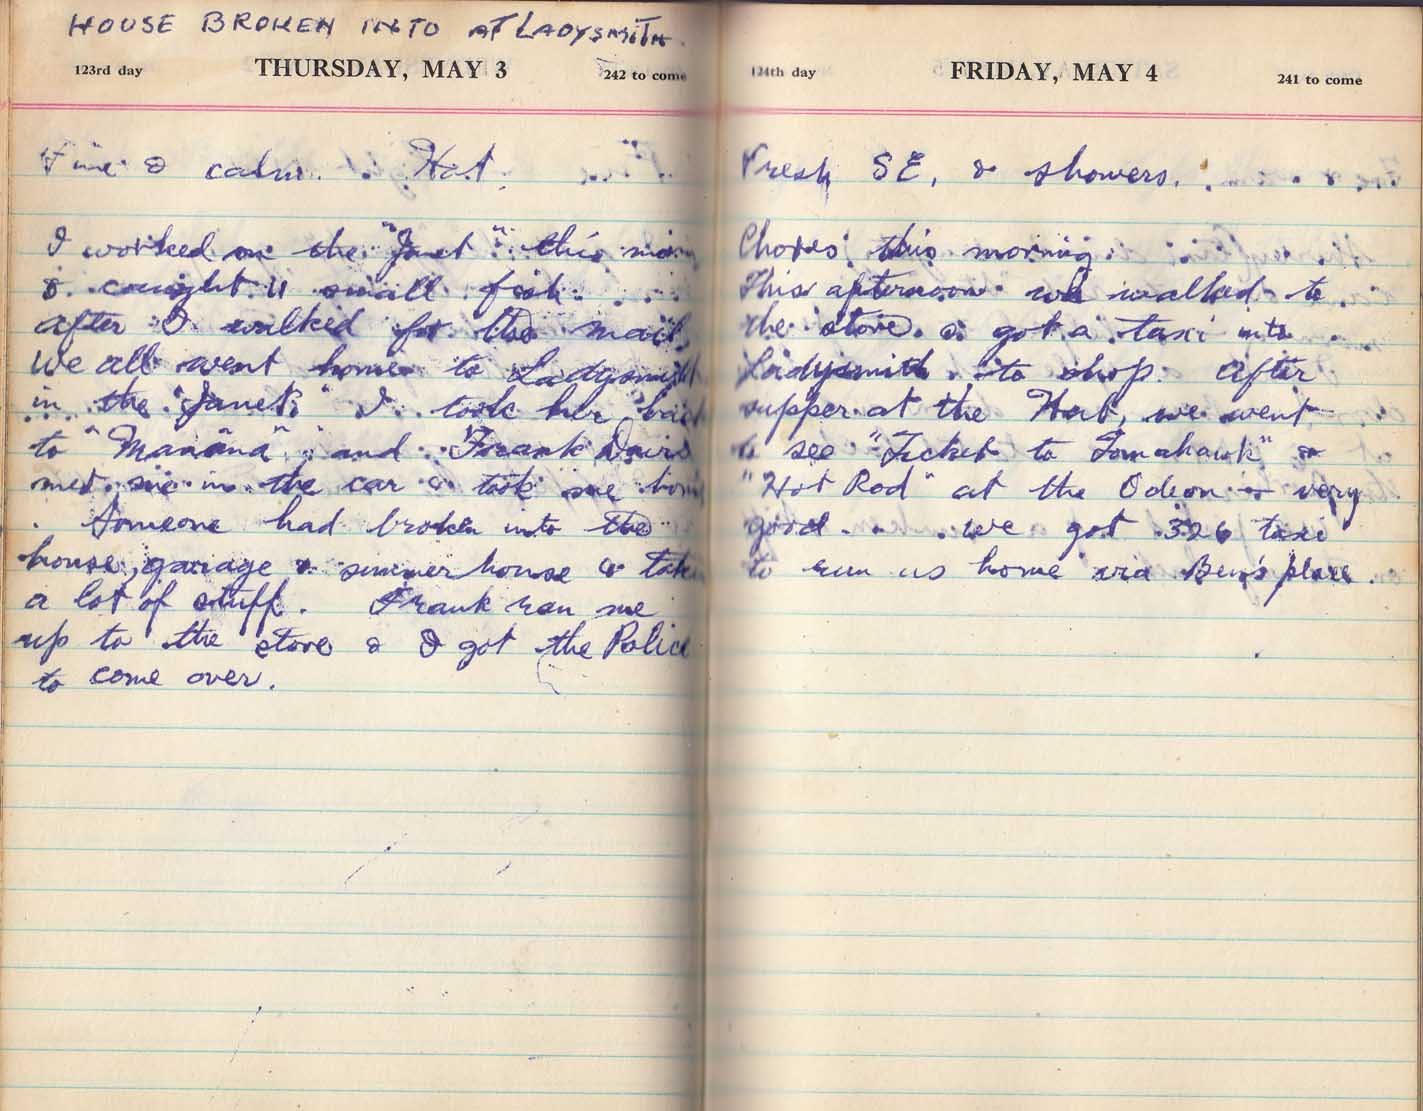 HOUSE BROKEN INTO AT LADYSMITH.
123rd day THURSDAY, MAY 3 242 to come
Fine & calm. Hot.
I worked on the "Janet" this morn
& caught 11 small fish.
After I walked for the mail,
We all went home to Ladysmith
in the "Janet." I took her back
to "Manana" and Frank Davis
met me in the car & took me home
. Someone had broken into the
house, garage & summer house & taken
a lot of stuff. Frank ran me
up to the store & I got the Police
to come over.
124th day FRIDAY, MAY 4 241 to come
Fresh SE, & showers.
Chores this morning.
This afternoon we walked to
the store & got a taxi into
Ladysmith to shop. After
supper at the Hat, we went
to see "Ticket to Tomahawk" &
"Hot Rod" at the Odeon - very
good. We got 326 taxi
to run us home via Ben's place.